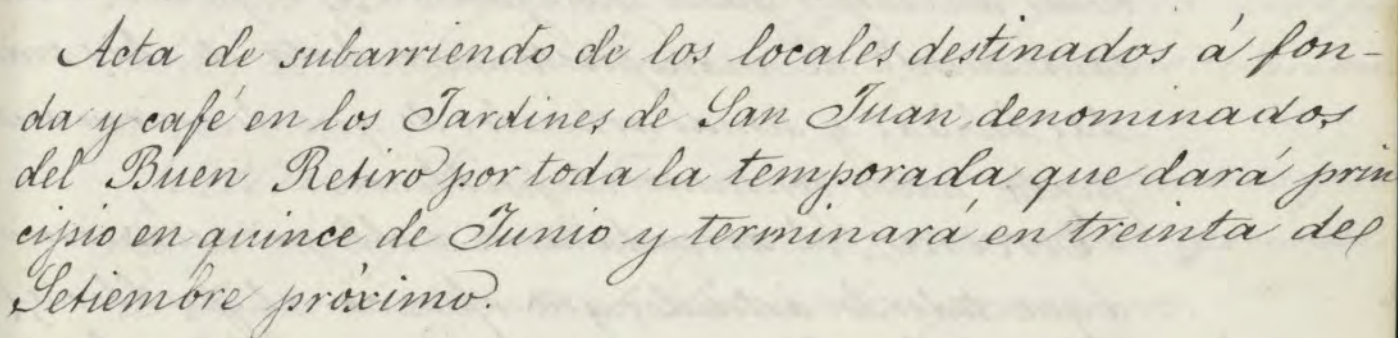 Acta de subarriendo de los locales destinados á fon-
da y café en los Jardines de San Juan denominados
del Buen Retiro por toda la temporada que dará prin
cipio en quince de Junio y terminará en treinta de
Setiembre próximo.